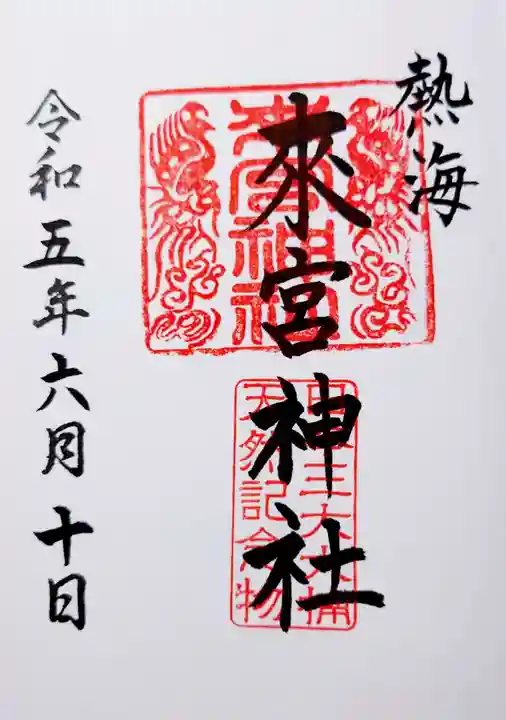 熱海
來宮神社
來宮神社
天然記念物
令和五年六月十日